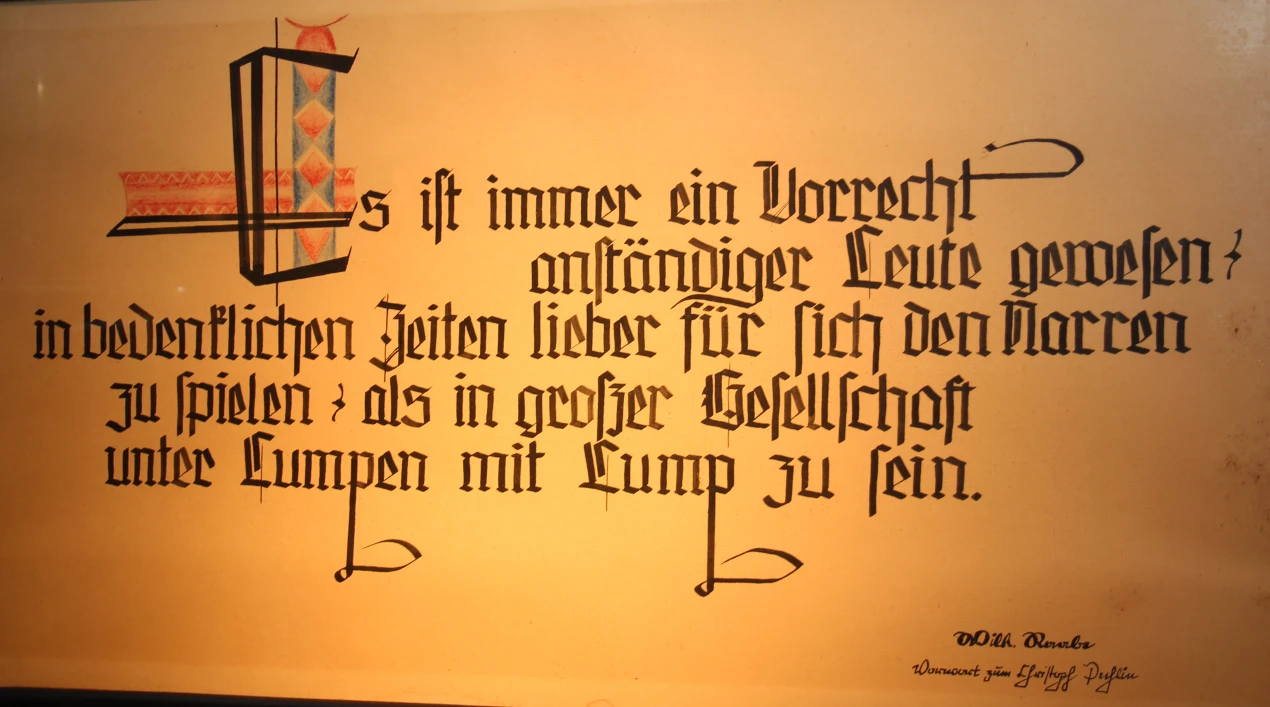 Es ist immer ein Vorrecht
anständiger Leute gewesen,
in bedenklichen Zeiten lieber für sich den Narren
zu spielen, als in großer Gesellschaft
unter Lumpen mit Lump zu sein.
Wilh. Raabe
Vorwort zum Christoph Pechlin